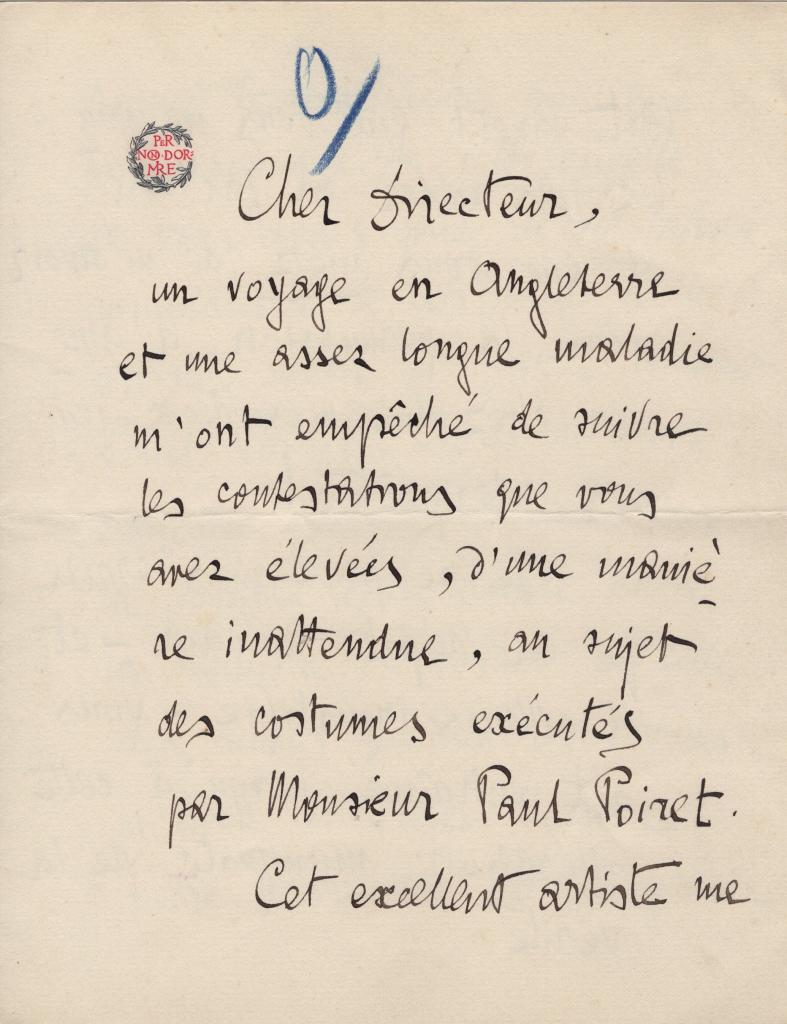 PER
NON DOR=
MIRE
Cher Directeur,
un voyage en Angleterre
et une assez longue maladie
m'ont empêché de suivre
les contestations que vous
avez élevées, d'une maniè
re inattendue, au sujet
des costumes exécutés
par Monsieur Paul Poiret.
Cet excellent artiste me